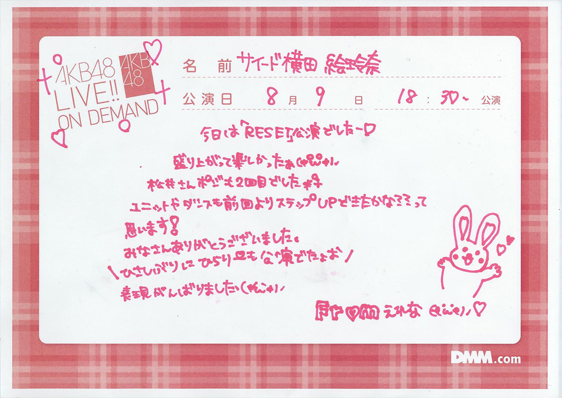 AKB48
LIVE!!
ON DEMAND
AKB
48
名 前 サイード横田 絵玲奈
公演日 8月 9日 18:30~ 公演
今日は「RESET」公演でしたー♡
盛り上がって楽しかったぁ
松井さんポジも2回目でした
ユニットやダンスも前回よりステップUPできたかなミミって
思います!
みなさんありがとうございました。
\ひさしぶりにひらり 公演でたよお/
表現がんばりました
えれな
DMM.com